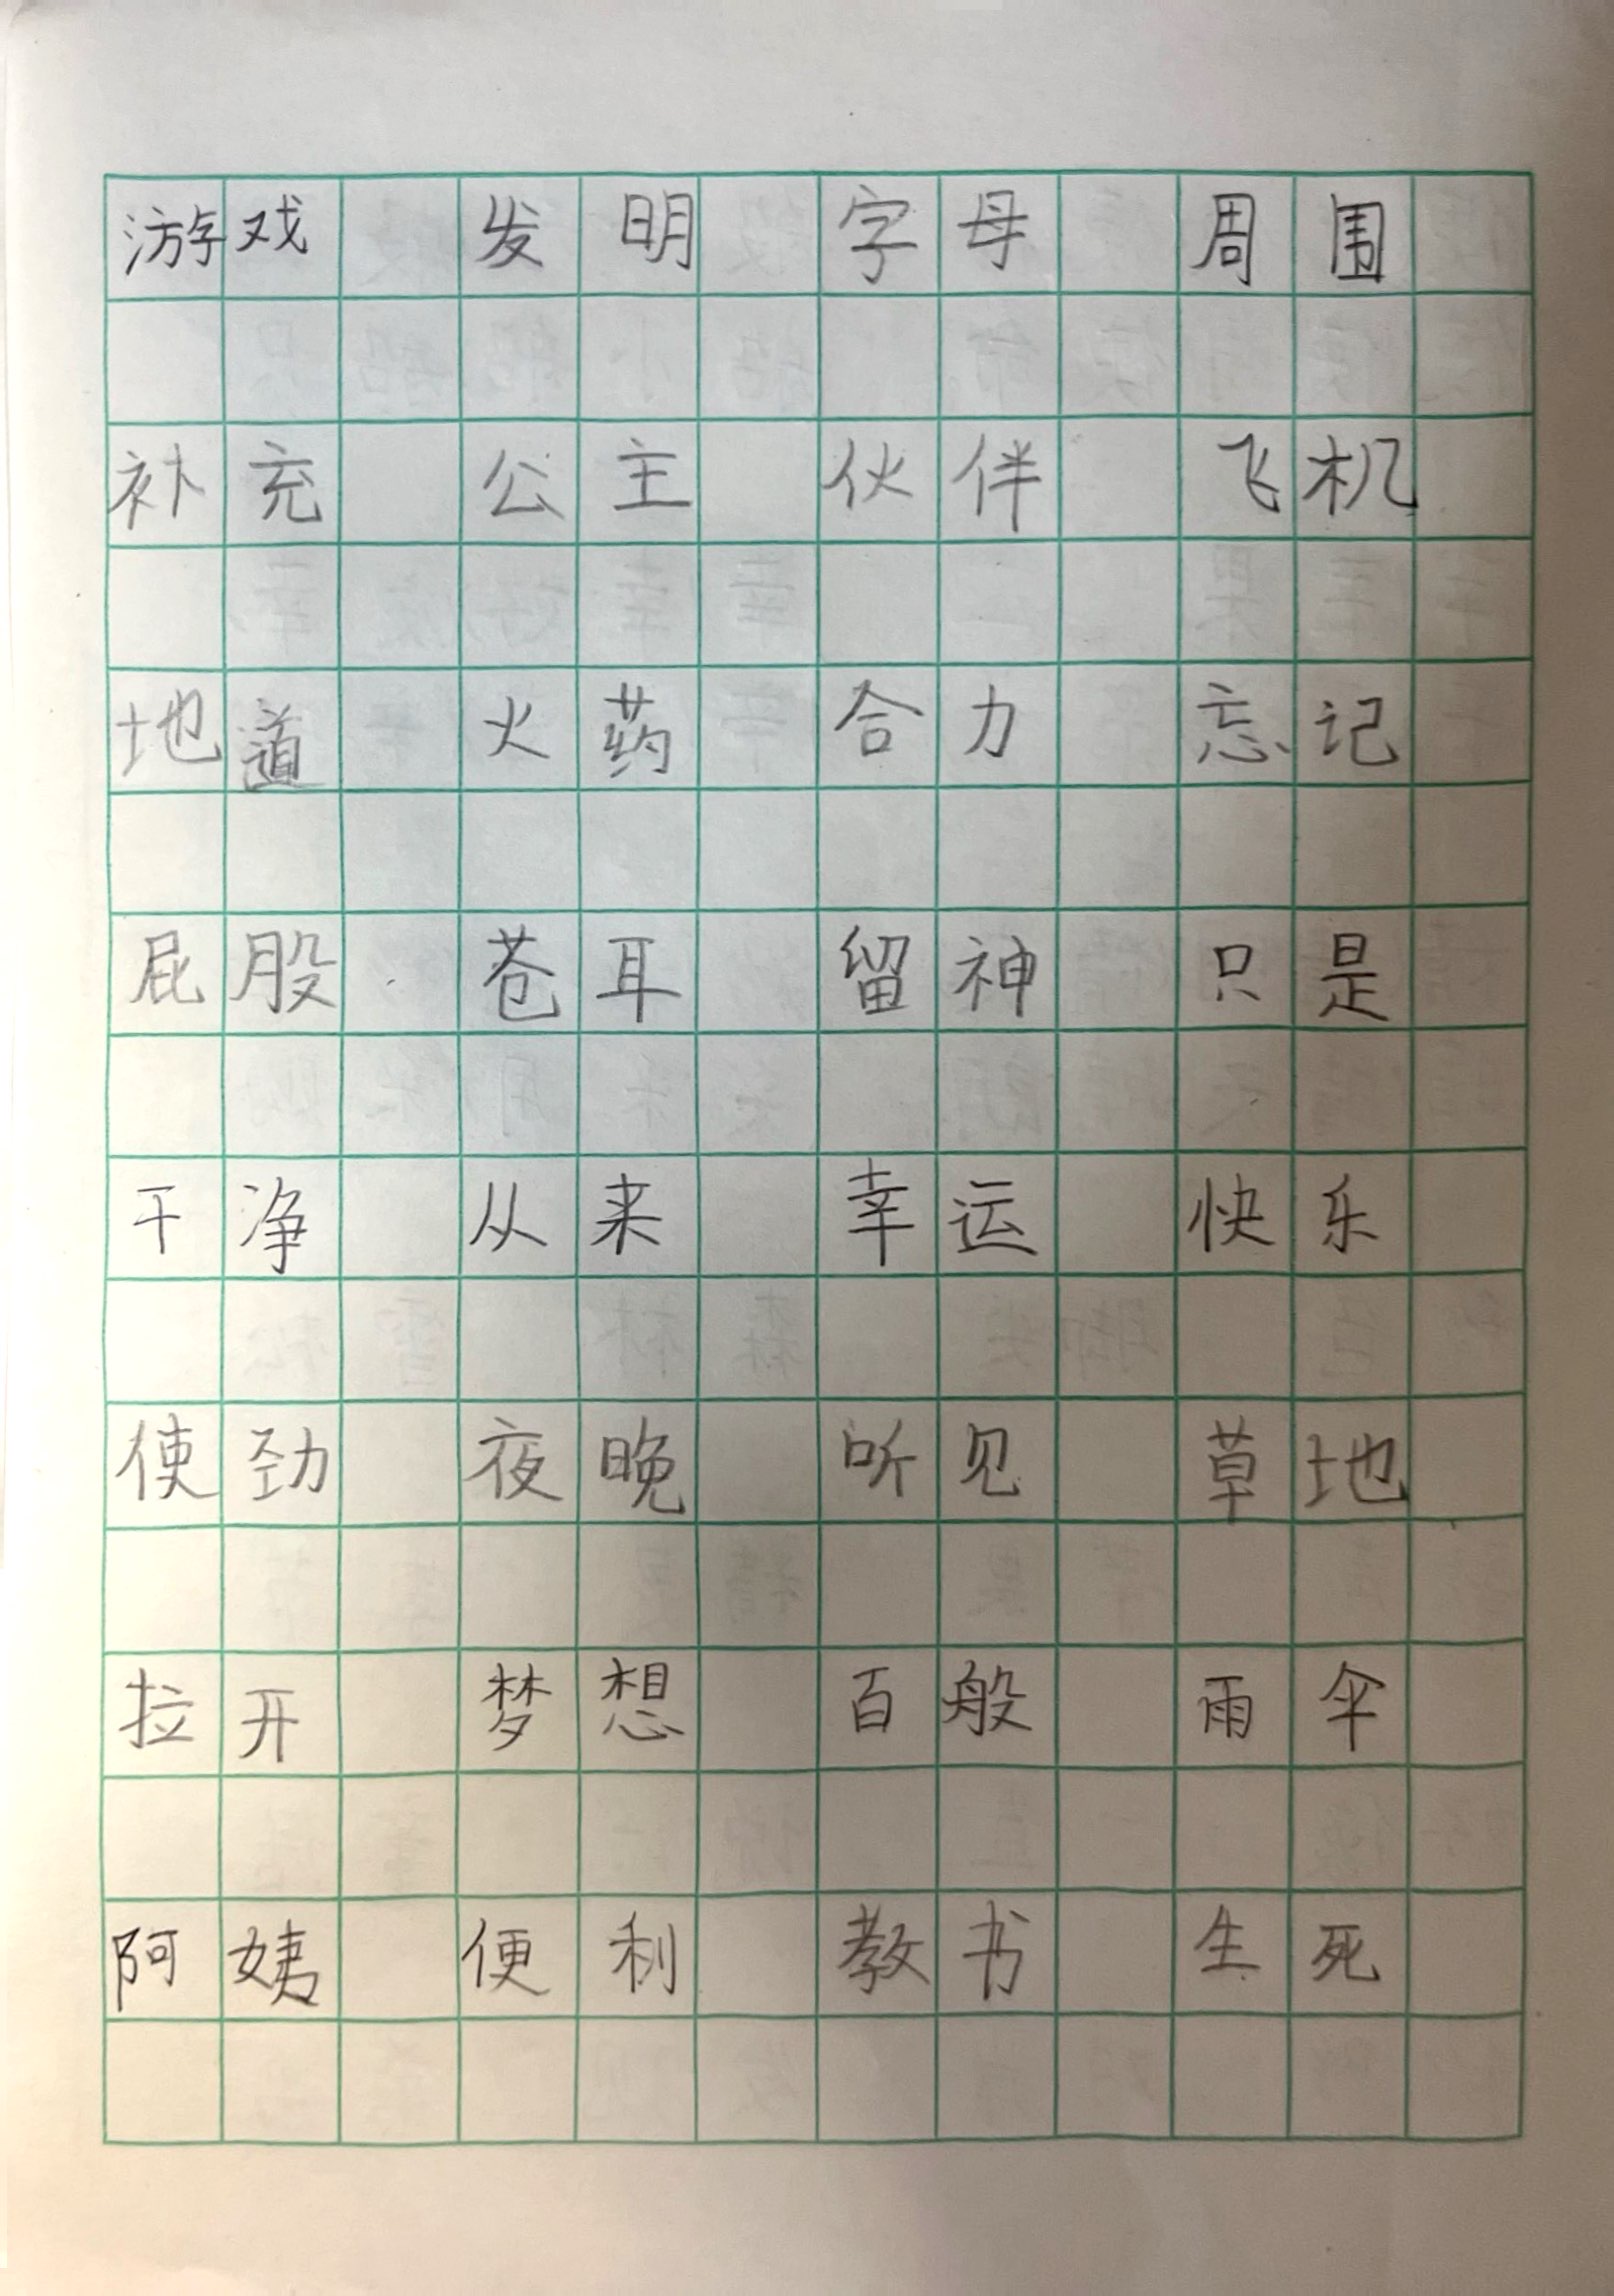 游戏 发明 字母 周围
补充 公主 伙伴 飞机
地道 火药 合力 忘记
屁股 苍耳 留神 只是
干净 从来 幸运 快乐
使劲 夜晚 听见 草地
拉开 梦想 百般 雨伞
阿姨 便利 教书 生死